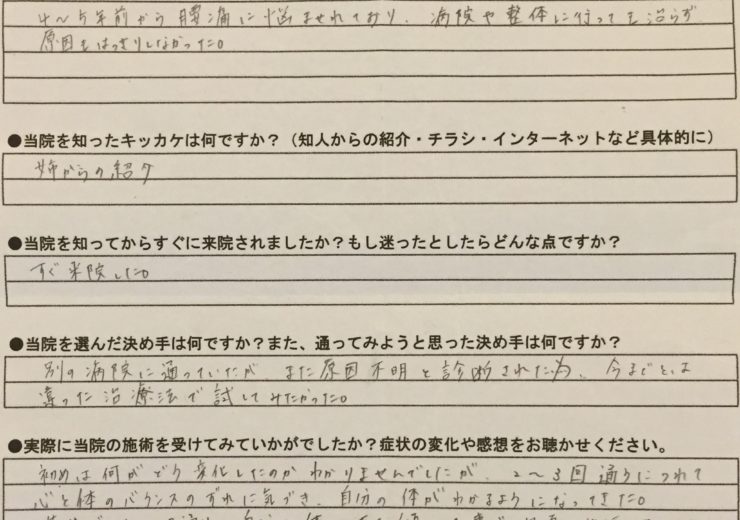 4〜5年前から腰痛に悩まされており、病院や整体に行っても治らず
原因もはっきりしなかった。
●当院を知ったキッカケは何ですか？（知人からの紹介・チラシ・インターネットなど具体的に）
姉からの紹介
●当院を知ってからすぐに来院されましたか？もし迷ったとしたらどんな点ですか？
すぐ来院した。
●当院を選んだ決め手は何ですか？また、通ってみようと思った決め手は何ですか？
別の病院に通っていたが、また原因不明と診断された為、今までとは
違った治療法で試してみたかった。
●実際に当院の施術を受けてみていかがでしたか？症状の変化や感想をお聴かせください。
初めは何がどう変化したのかわかりませんでしたが、2〜3回通うにつれて
心と体のバランスのずれに気づき、自分の体がわかるようになってきた。